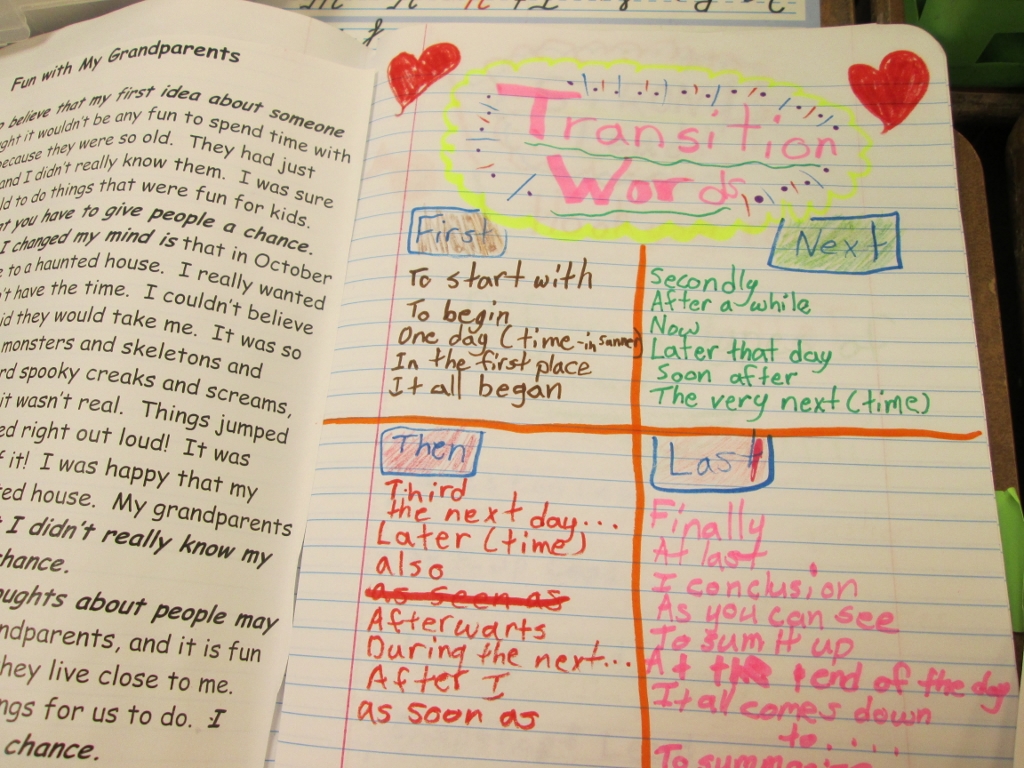 Fun with My Grandparents
believe that my first idea about someone
it wouldn't be any fun to spend time with
because they were so old. They had just
and I didn't really know them. I was sure
to do things that were fun for kids.
you have to give people a chance.
I changed my mind is that in October
to a haunted house. I really wanted
have the time. I couldn't believe
they would take me. It was so
monsters and skeletons and
spooky creaks and screams,
it wasn't real. Things jumped
right out loud! It was
it! I was happy that my
house. My grandparents
I didn't really know my
chance.
about people may
and it is fun
they live close to me.
for us to do. I
chance.
Transition
Words
First
To start with
To begin
One day (time-in summer)
In the first place
It all began
Next
Secondly
After a while
Now
Later that day
Soon after
The very next (time)
Then
Third
the next day...
Later (time)
also
as seen as
Afterwarts
During the next...
After I
as soon as
Last
Finally
At last
I conclusion
As you can see
To sum it up
At the end of the day
It all comes down
to....